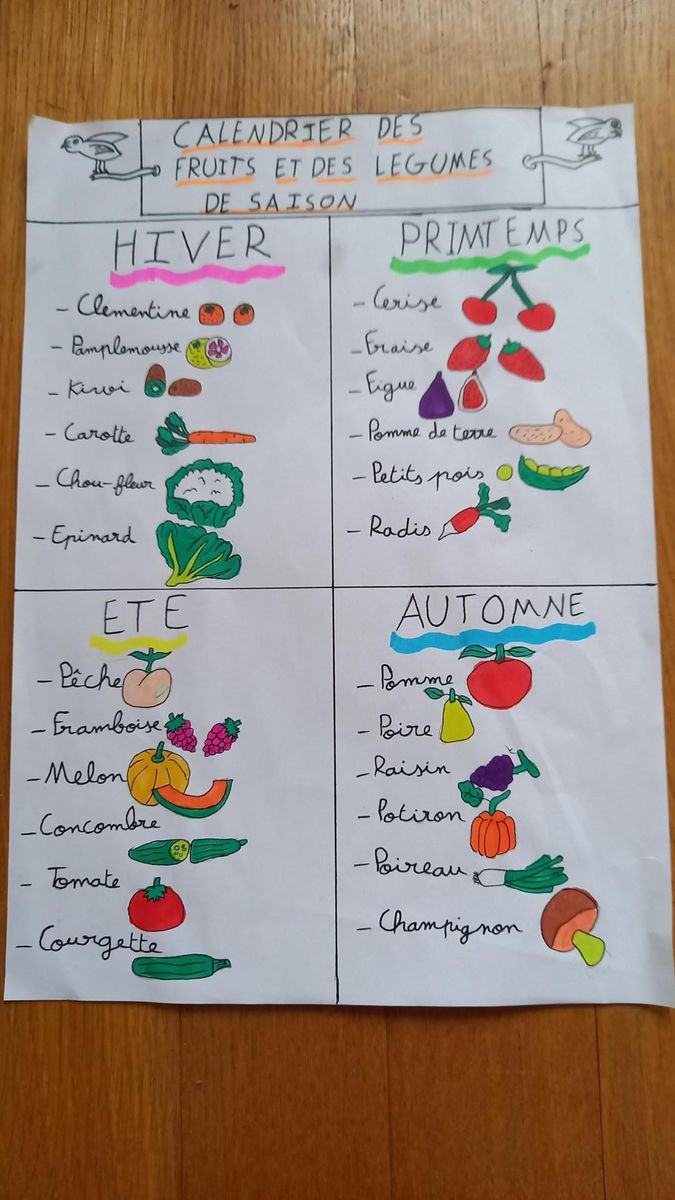 CALENDRIER DES
FRUITS ET DES LEGUMES
DE SAISON
HIVER
- Clementine
- Pamplemousse
- Kiwi
- Carotte
- Chou-fleur
- Epinard
PRINTEMPS
- Cerise
- Fraise
- Figue
- Pomme de terre
- Petits pois
- Radis
ETE
- Pêche
- Framboise
- Melon
- Concombre
- Tomate
- Courgette
AUTOMNE
- Pomme
- Poire
- Raisin
- Potiron
- Poireau
- Champignon